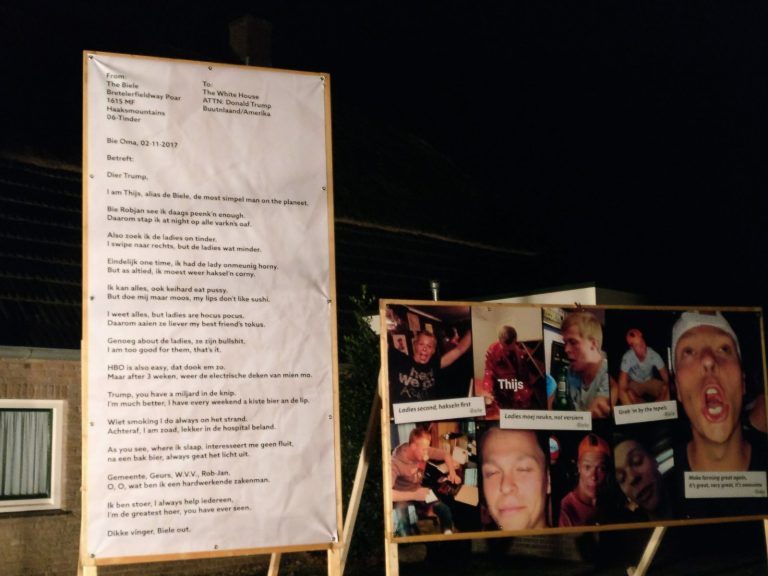 From:
The Biele
Bretelerfieldway Poar
1615 MF
Haaksmountains
06-Tinder
To:
The White House
ATTN: Donald Trump
Buutnlaand/Amerika
Bie Oma, 02-11-2017
Betreft:
Dier Trump,
I am Thijs, alias de Biele, de most simpel man on the planeet.
Bie Robjan see ik daags peenk'n enough.
Daarom stap ik at night op alle varkn's oaf.
Also zoek ik de ladies on tinder.
I swipe naar rechts, but de ladies wat minder.
Eindelijk one time, ik had de lady onmeunig horny.
But as altied, ik moest weer haksel'n corny.
Ik kan alles, ook keihard eat pussy.
But doe mij maar moos, my lips don't like sushi.
I weet alles, but ladies are hocus pocus.
Daarom aaien ze liever my best friend's tokus.
Genoeg about de ladies, ze zijn bullshit.
I am too good for them, that's it.
HBO is also easy, dat dook em zo.
Maar after 3 weken, weer de electrische deken van mien mo.
Trump, you have a miljard in de knip.
I'm much better, I have every weekend a kiste bier an de lip.
Wiet smoking I do always on het strand.
Achteraf, I am zoad, lekker in de hospital beland.
As you see, where ik slaap, interesseert me geen fluit,
na een bak bier, always geat het licht uit.
Gemeente, Geurs, W.V.V., Rob-Jan,
O, O, wat ben ik een hardwerkende zakenman.
Ik ben stoer, I always help iedereen,
I'm de greatest hoer, you have ever seen.
Dikke vinger, Biele out.
Thijs
Ladies second, hakseln first
-Biele
Ladies moej neukn, not versiern
-Biele
Grab 'm by the tepels
-Biele
Make farming great again,
it's great, very great, it's awesome
-Biele